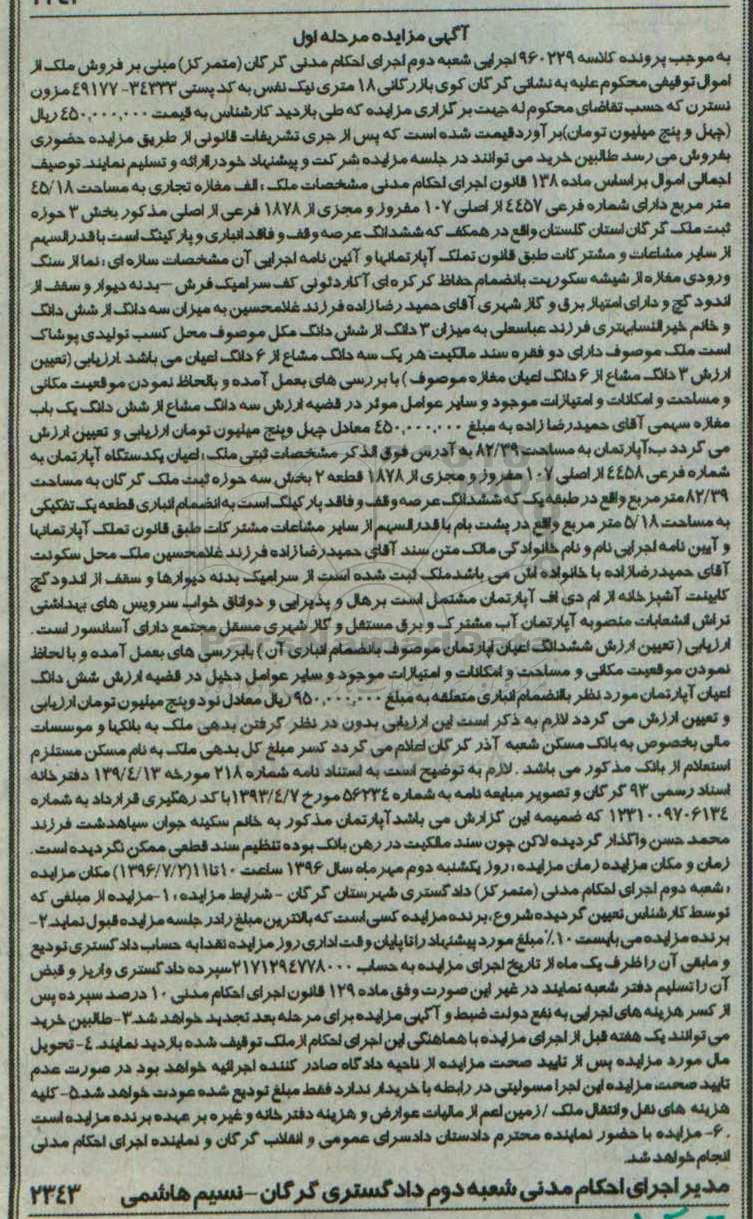 آگهی مزایده مرحله اول
به موجب پرونده کلاسه ۹۶۰۲۲۹ اجرایی شعبه دوم اجرای احکام مدنی گرگان (متمرکز) مبنی بر فروش ملک از
اموال توقیفی محکوم علیه به نشانی گرگان کوی بازرگانی ۱۸ متری نیک نفس به کدپستی ۳۴۳۳۳-۴۹۱۷۷ مزون
نسترن که حسب تقاضای محکوم له جهت برگزاری مزایده که طی بازدید کارشناس به قیمت ۴۵۰,۰۰۰,۰۰۰ ریال
(چهل و پنج میلیون تومان)برآوردقیمت شده است که پس از جری تشریفات قانونی از طریق مزایده حضوری
بفروش می رسد طالبین خرید می توانند در جلسه مزایده شرکت و پیشنهاد خودراارائه و تسلیم نمایند. توصیف
اجمالی اموال براساس ماده ۱۳۸ قانون اجرای احکام مدنی مشخصات ملک : الف مغازه تجاری به مساحت ۴۵/۱۸
متر مربع دارای شماره فرعی ۴۴۵۷ از اصلی ۱۰۷ مفروز و مجزی از ۱۸۷۸ فرعی از اصلی مذکور بخش ۳ حوزه
ثبت ملک گرگان استان گلستان واقع در همکف که ششدانگ عرصه وقف و فاقد انباری و پارکینگ است با قدرالسهم
از سایر مشاعات و مشترکات طبق قانون تملک آپارتمانها و آئین نامه اجرایی آن مشخصات سازه ای : نما از سنگ
ورودی مغازه از شیشه سکوریت بانضمام حفاظ کرکره ای آکاردئونی کف سرامیک فرش –بدنه دیوار و سقف از
اندود گچ و دارای امتیاز برق و گاز شهری آقای حمید رضا زاده فرزند غلامحسین به میزان سه دانگ از شش دانگ
و خانم خیرالنساءبهتری فرزند عباسعلی به میزان ۳ دانگ از شش دانگ مکل موصوف محل کسب تولیدی پوشاک
است ملک موصوف دارای دو فقره سند مالکیت هر یک سه دانگ مشاع از ۶ دانگ اعیان می باشد .ارزیابی (تعیین
ارزش ۳ دانگ مشاع از ۶ دانگ اعیان مغازه موصوف ) با بررسی های بعمل آمده و بالحاظ نمودن موقعیت مکانی
و مساحت و امکانات و امتیازات موجود و سایر عوامل موثر در قضیه ارزش سه دانگ مشاع از شش دانگ یک باب
مغازه سهمی آقای حمیدرضا زاده به مبلغ ۴۵۰,۰۰۰,۰۰۰ معادل چهل وپنج میلیون تومان ارزیابی و تعیین ارزش
می گردد ب:آپارتمان به مساحت ۸۲/۳۹ به آدرس فوق الذکر مشخصات ثبتی ملک : اعیان یکدستگاه آپارتمان به
شماره فرعی ۴۴۵۸ از اصلی ۱۰۷ مفروز و مجزی از ۱۸۷۸ قطعه ۲ بخش سه حوزه ثبت ملک گرگان به مساحت
۸۲/۳۹ متر مربع واقع در طبقه یک که ششدانگ عرصه وقف و فاقد پارکینگ است به انضمام انباری قطعه یک تفکیکی
به مساحت ۵/۱۸ متر مربع واقع در پشت بام با قدرالسهم از سایر مشاعات مشترکات طبق قانون تملک آپارتمانها
و آیین نامه اجرایی نام و نام خانوادگی مالک متن سند آقای حمیدرضا زاده فرزند غلامحسین ملک محل سکونت
آقای حمیدرضازاده با خانواده اش می باشدملک ثبت شده است از سرامیک بدنه دیوارها و سقف از اندودگچ
کابینت آشپزخانه از ام دی اف آپارتمان مشتمل است برهال و پذیرایی و دواتاق خواب سرویس های بهداشتی
تراس انشعابات منصوبه آپارتمان آب مشترک و برق مستقل و گاز شهری مسقل مجتمع دارای آسانسور است .
ارزیابی ( تعیین ارزش ششدانگ اعیان آپارتمان موصوف بانضمام انباری آن ) بابررسی های بعمل آمده و بالحاظ
نمودن موقعیت مکانی و مساحت و امکانات و امتیازات موجود و سایر عوامل دخیل در قضیه ارزش شش دانگ
اعیان آپارتمان مورد نظر باانضمام انباری متعلقه به مبلغ ۹۵۰,۰۰۰,۰۰۰ ریال معادل نود وپنج میلیون تومان ارزیابی
و تعیین ارزش می گردد لازم به ذکر است این ارزیابی بدون در نظر گرفتن بدهی ملک به بانکها و موسسات
مالی بخصوص به بانک مسکن شعبه آذر گرگان اعلام می گردد کسر مبلغ کل بدهی ملک به نام مسکن مستلزم
استعلام از بانک مذکور می باشد . لازم به توضیح است به استناد نامه شماره ۲۱۸ مورخه ۱۳۹/۴/۱۳ دفترخانه
اسناد رسمی ۹۳ گرگان و تصویر مبایعه نامه به شماره ۵۶۲۳۴ مورخ ۱۳۹۳/۴/۷با کد رهگیری قرارداد به شماره
۱۲۳۱۰۰۹۷۰۶۱۳۴ که ضمیمه این گزارش می باشدآپارتمان مذکور به خانم سکینه جوان سیاهدشت فرزند
محمد حسن واگذار گردیده لاکن چون سند مالکیت در رهن بانک بوده تنظیم سند قطعی ممکن نگردیده است .
زمان و مکان مزایده :زمان مزایده : روز یکشنبه دوم مهرماه سال ۱۳۹۶ ساعت ۱۰تا۱۱(۱۳۹۶/۷/۲) مکان مزایده
: شعبه دوم اجرای احکام مدنی (متمرکز) دادگستری شهرستان گرگان – شرایط مزایده : ۱-مزایده از مبلغی که
توسط کارشناس تعیین گردیده شروع، برنده مزایده کسی است که بالاترین مبلغ رادر جلسه مزایده قبول نماید.۲-
برنده مزایده می بایست ۱۰٪ مبلغ مورد پیشنهاد را تا پایان وقت اداری روز مزایده نقدا به حساب دادگستری تودیع
و مابقی آن را ظرف یک ماه از تاریخ اجرای مزایده به حساب ۲۱۷۱۲۹۴۷۷۸۰۰۰سپرده دادگستری واریز و قبض
آن را تسلیم دفتر شعبه نمایند در غیر این صورت وفق ماده ۱۲۹ قانون اجرای احکام مدنی ۱۰ درصد سپرده پس
از کسر هزینه های اجرایی به نفع دولت ضبط و آگهی مزایده برای مرحله بعد تجدید خواهد شد.۳-طالبین خرید
می توانند یک هفته قبل از اجرای مزایده با هماهنگی این اجرای احکام ازملک توقیف شده بازدید نمایند. ۴- تحویل
مال مورد مزایده پس از تایید صحت مزایده از ناحیه دادگاه صادر کننده اجرائیه خواهد بود در صورت عدم
تایید صحت مزایده این اجرا مسولیتی در رابطه با خریدار ندارد فقط مبلغ تودیع شده عودت خواهد شد.۵-کلیه
هزینه های نقل وانتقال ملک / زمین اعم از مالیات عوارض و هزینه دفترخانه و غیره بر عهده برنده مزایده است
. ۶- مزایده با حضور نماینده محترم دادستان دادسرای عمومی و انقلاب گرگان و نماینده اجرای احکام مدنی
انجام خواهد شد.
مدیر اجرای احکام مدنی شعبه دوم دادگستری گرگان –نسیم هاشمی ۲۳۴۳